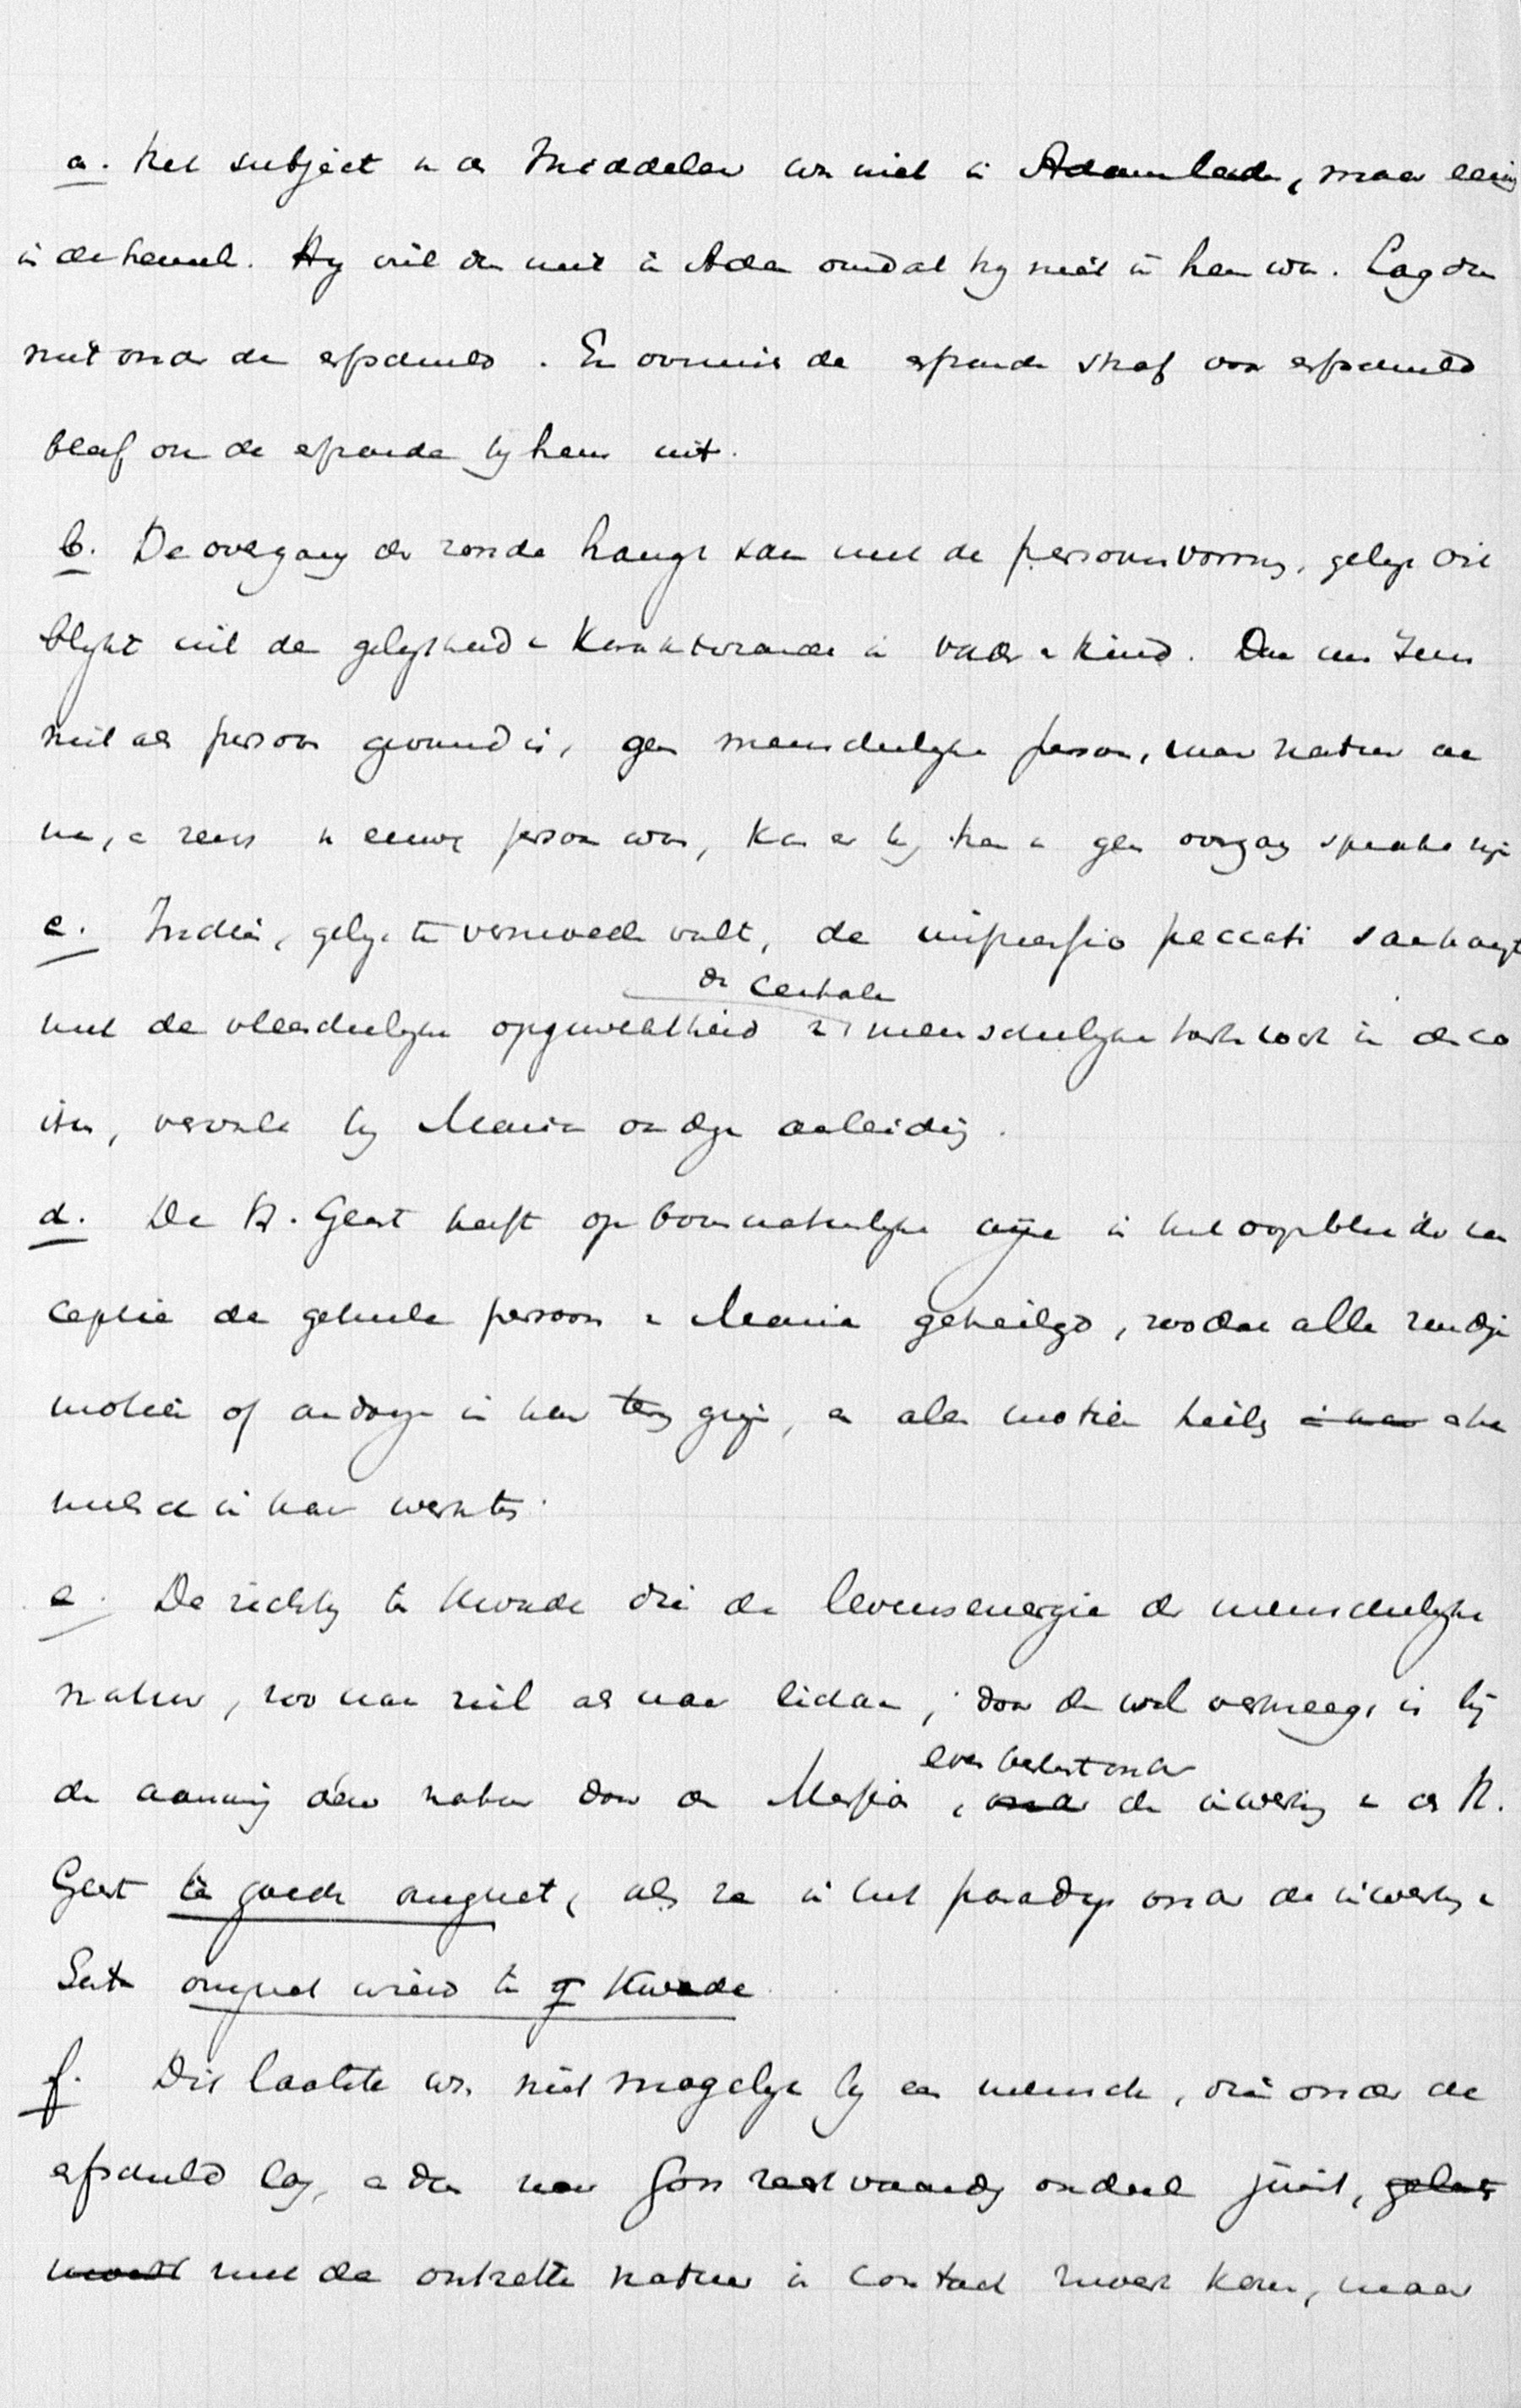 a. Het subject in de Middelaar was niet in Adams lenden, maar eeuwig
in de hemel. Hy viel dus niet in Adam omdat hy niet in hem was. Lag dus
niet onder de erfschuld. En overmits de erfzonde straf voor erfschuld
bleef ook de erfzonde by hem uit.
b. De overgang der zonde hangt saam met de persoonsvorming, gelyk dit
blykt uit de gelykheid in karakterzonde in vader en kind. Daar nu Jezus
niet als persoon gevormd is, geen menschelyke persoon, maar natuur aan
nam, en reeds eeuwig persoon was, kan er by hem geen overgang sprake zyn
c. Indien, gelyk te vermoeden valt, de impressio peccati saamhangt
met de vleeschelyke opgewektheid der centrale menschelyke hartstocht in de co
itus, verviel by Maria ook die aanleiding.
d. De H. Geest heeft op bovennatuurlyke wyze in het oogenblik der con
ceptie de geheele persoon van Maria geheiligd, zoodat alle zondige
motien of aandoening in haar terug ging, en alleen motien heilig
in haar werkten.
e. De richting ten kwade die de levensenergie der menschelyke
natuur, zoo naar ziel als naar lichaam, door de val verkreeg, is by
de aanneming dier natuur door de Messias, evenzeer onder de inwerking van de H.
Geest ten goede omgezet, als ze in het paradys onder de inwerking van
Satan omgezet wierd ten kwade
f. Dit laatste was niet mogelyk by een mensch, die onder de
erfschuld lag, en dus naar Gods rechtvaardig oordeel juist,
met de ontzette natuur in contact moest komen, maar